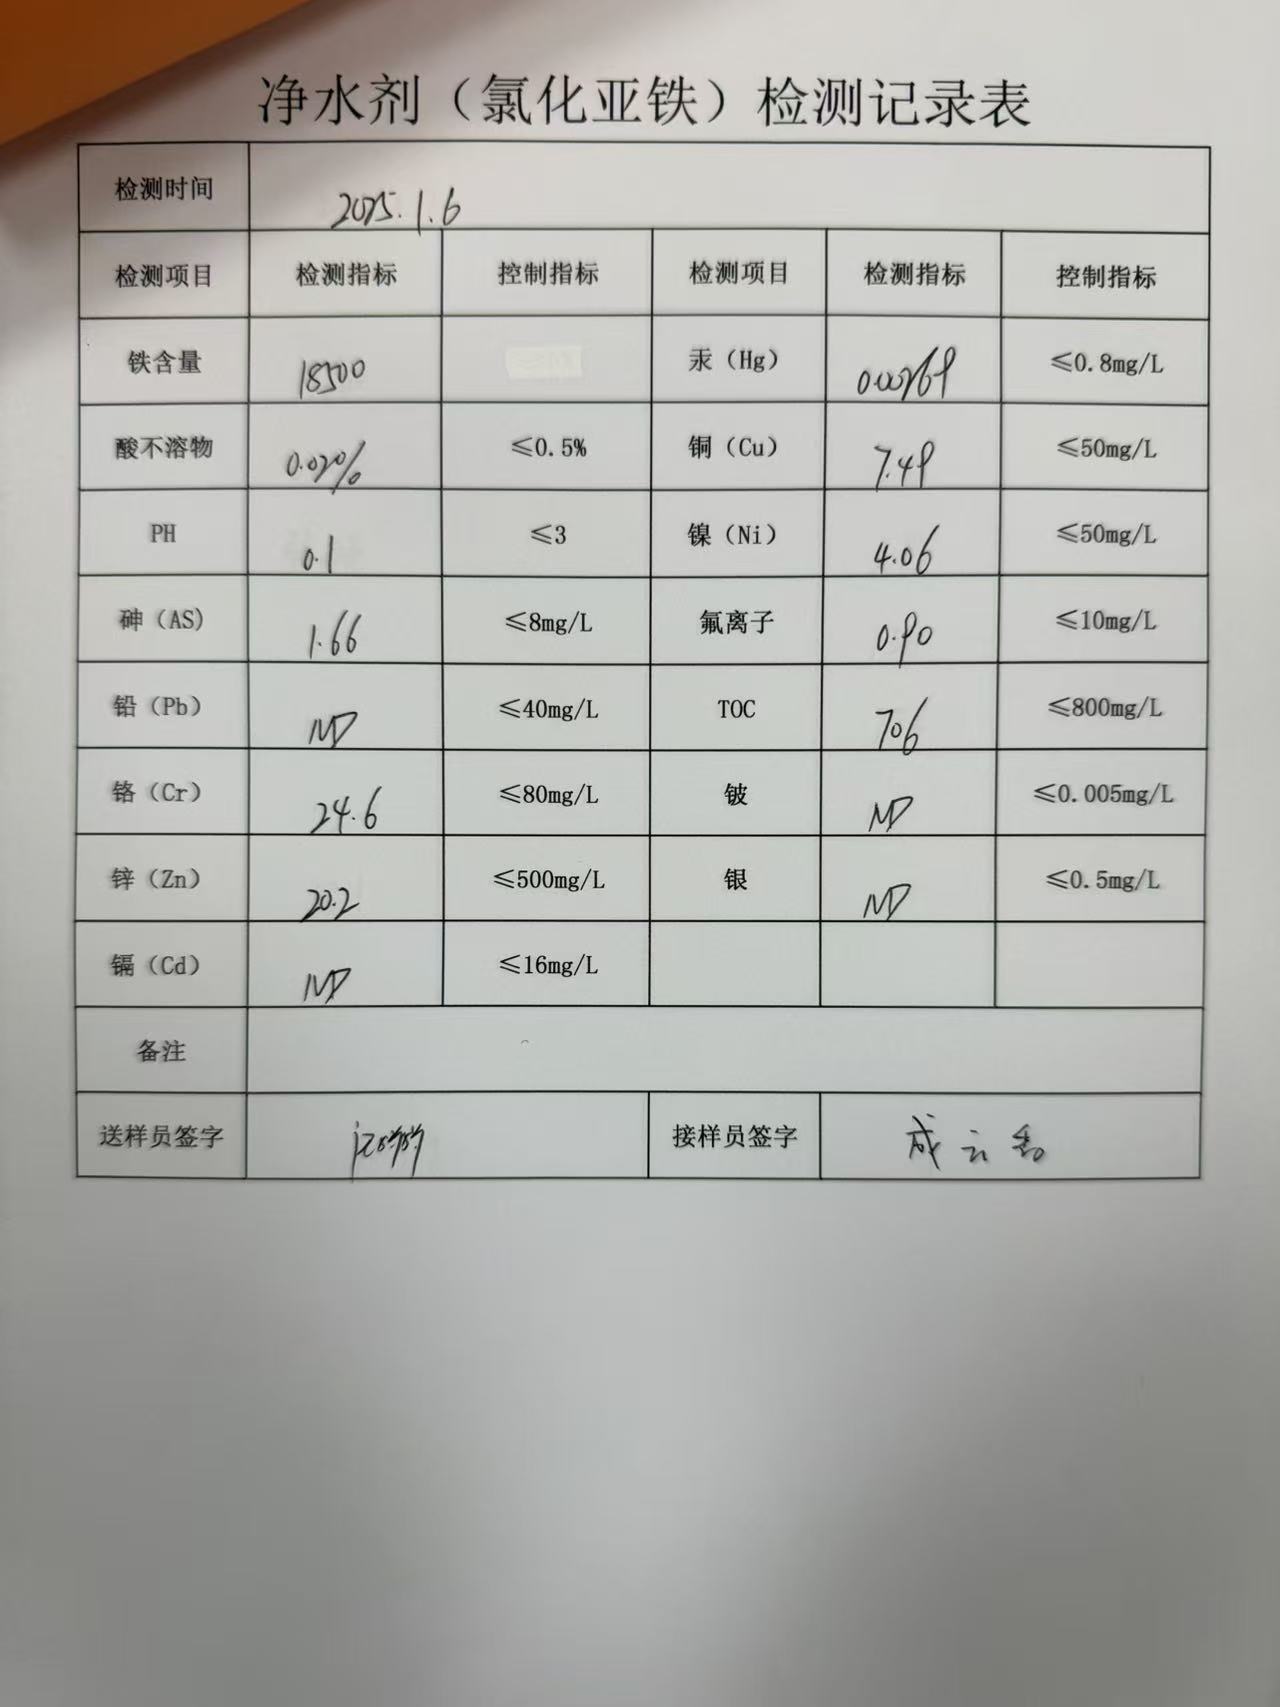 净水剂（氯化亚铁）检测记录表
检测时间 2025.1.6
检测项目 检测指标 控制指标 检测项目 检测指标 控制指标
铁含量 18500 汞（Hg） 0.00269 ≤0.8mg/L
酸不溶物 0.02% ≤0.5% 铜（Cu） 7.49 ≤50mg/L
PH 0.1 ≤3 镍（Ni） 4.06 ≤50mg/L
砷（AS） 1.66 ≤8mg/L 氟离子 0.90 ≤10mg/L
铅（Pb） ND ≤40mg/L TOC 706 ≤800mg/L
铬（Cr） 24.6 ≤80mg/L 铍 ND ≤0.005mg/L
锌（Zn） 20.2 ≤500mg/L 银 ND ≤0.5mg/L
镉（Cd） ND ≤16mg/L
备注
送样员签字 接样员签字 成云香